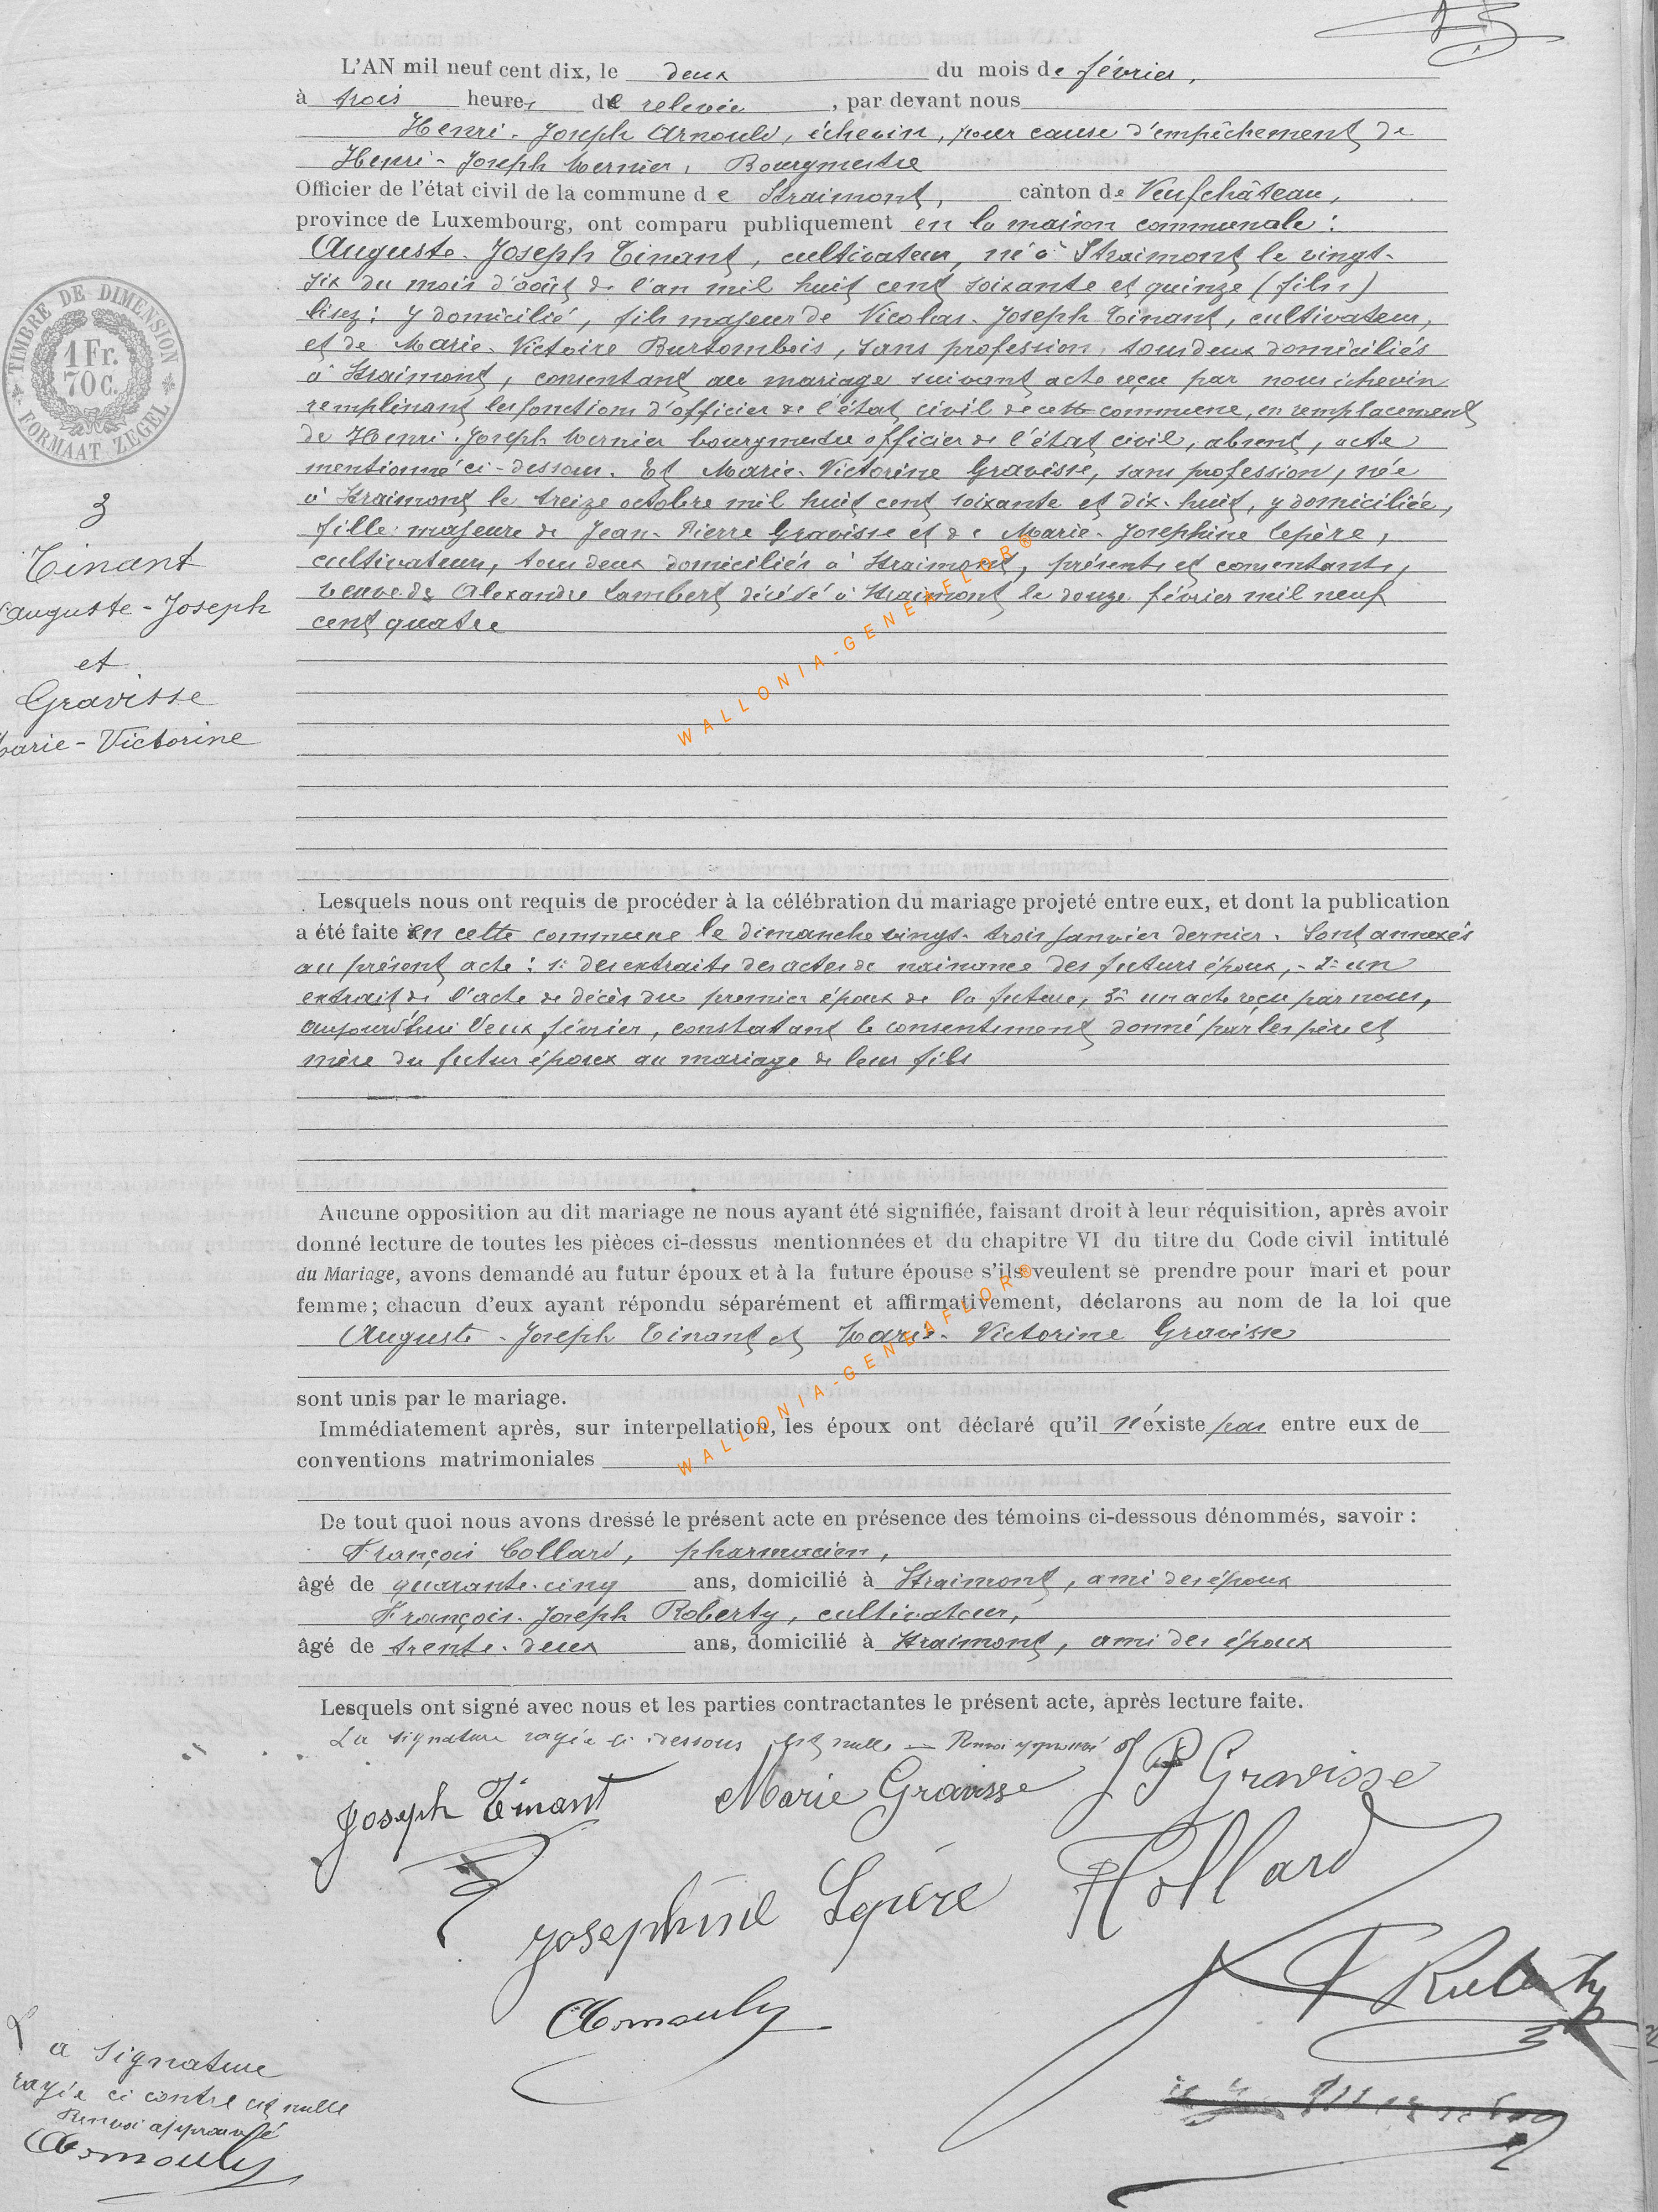 L'AN mil neuf cent dix, le deux du mois de février,
à trois heures de relevée, par devant nous
Henri-Joseph Arnould, échevin, pour cause d'empêchement de
Henri-Joseph Wernier, Bourgmestre
Officier de l'état civil de la commune de Straimont, canton de Neufchâteau,
province de Luxembourg, ont comparu publiquement en la maison communale :
Auguste-Joseph Tinant, cultivateur, né à Straimont le vingt-
six du mois d'août de l'an mil huit cent soixante et quinze (fils)
lisez : y domicilié, fils majeur de Nicolas-Joseph Tinant, cultivateur,
et de Marie-Victoire Burtombois, sans profession, tous deux domiciliés
à Straimont, consentant au mariage suivant acte reçu par nous échevin
remplissant les fonctions d'officier de l'état civil de cette commune, en remplacement
de Henri-Joseph Wernier bourgmestre officier de l'état civil, absent, acte
mentionné ci-dessous. Et Marie-Victorine Gravisse, sans profession, née
à Straimont le treize octobre mil huit cent soixante et dix-huit, y domiciliée,
fille majeure de Jean-Pierre Gravisse et de Marie-Josephine Lepère,
cultivateurs, tous deux domiciliés à Straimont, présents et consentants,
veuve de Alexandre Lambert décédé à Straimont le douze février mil neuf
cent quatre
TIMBRE DE DIMENSION
1 Fr.
70 c.
FORMAAT ZEGEL
3
Tinant
Auguste-Joseph
et
Gravisse
Marie-Victorine
WALLONIA-GENEAFLOR®
Lesquels nous ont requis de procéder à la célébration du mariage projeté entre eux, et dont la publication
a été faite en cette commune le dimanche vingt-trois janvier dernier. Sont annexés
au présent acte : 1° des extraits des actes de naissance des futurs époux, - 2° un
extrait de l'acte de décès du premier époux de la future, 3° un acte reçu par nous,
aujourd'hui deux février, constatant le consentement donné par les père et
mère du futur époux au mariage de leur fils
Aucune opposition au dit mariage ne nous ayant été signifiée, faisant droit à leur réquisition, après avoir
donné lecture de toutes les pièces ci-dessus mentionnées et du chapitre VI du titre du Code civil intitulé
du Mariage, avons demandé au futur époux et à la future épouse s'ils veulent se prendre pour mari et pour
femme; chacun d'eux ayant répondu séparément et affirmativement, déclarons au nom de la loi que
Auguste-Joseph Tinant et Marie-Victorine Gravisse
WALLONIA-GENEAFLOR®
sont unis par le mariage.
Immédiatement après, sur interpellation, les époux ont déclaré qu'il n'éxiste pas entre eux de
conventions matrimoniales
De tout quoi nous avons dressé le présent acte en présence des témoins ci-dessous dénommés, savoir :
François Collard, pharmacien,
âgé de quarante-cinq ans, domicilié à Straimont, ami des époux
François-Joseph Roberty, cultivateur,
âgé de trente-deux ans, domicilié à Straimont, ami des époux
Lesquels ont signé avec nous et les parties contractantes le présent acte, après lecture faite.
La signature rayée ci dessous est nulle — Renvoi approuvé
Joseph Tinant Marie Gravisse JP Gravisse
Josephine Lepère FCollard
Arnould F Roberty
La signature
rayée ci contre est nulle
Renvoi approuvé
Arnould